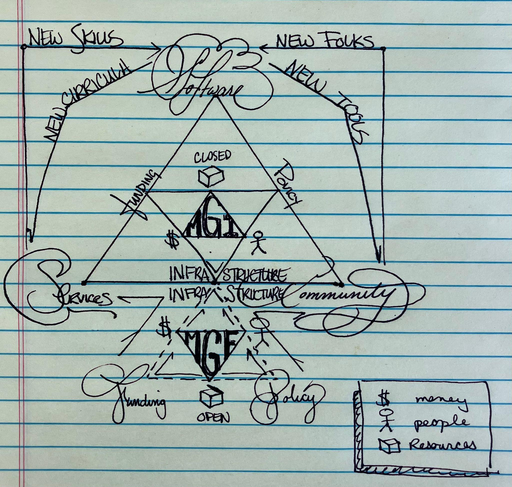 NEW SKILLS
NEW FOLKS
NEW CURRICULUM
Software
NEW TOOLS
CLOSED
Funding
Policy
MG1
$
INFRA STRUCTURE
Services
INFRA STRUCTURE
Community
$
MGF
Funding
OPEN
Policy
$ money
people
Resources